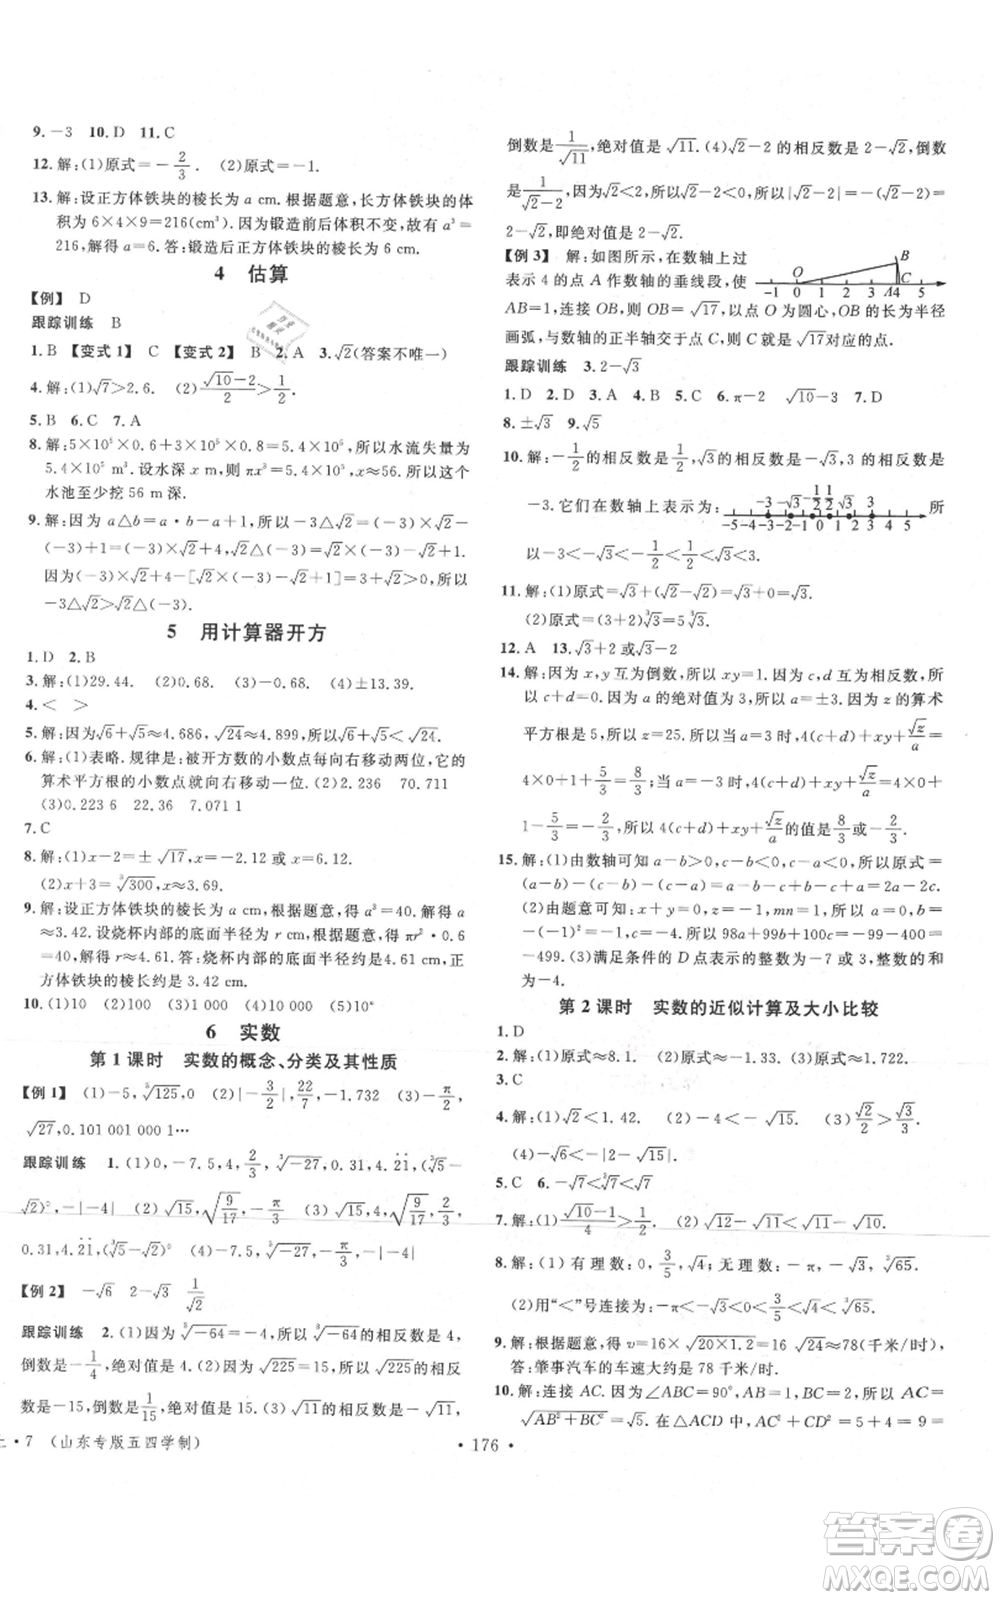 9.－3  10.D  11.C
12.解:(1)原式＝－2/3.  (2)原式＝－1.
13.解:设正方体铁块的棱长为 a cm.根据题意,长方体铁块的体
积为 6×4×9＝216(cm³).因为锻造前后体积不变,故有 a³＝
216,解得 a＝6.答:锻造后正方体铁块的棱长为 6 cm.
4  估算
【例】 D
跟踪训练  B
1.B 【变式1】 C 【变式2】 B  2.A  3.√2(答案不唯一)
4.解:(1)√7＞2.6.  (2)(√10－2)/2＞1/2.
5.B  6.C  7.A
8.解:5×10⁵×0.6＋3×10⁵×0.8＝5.4×10⁵,所以水流失量为
5.4×10⁵ m³.设水深 x m,则 πx³＝5.4×10⁵,x≈56.所以这个
水池至少挖 56 m 深.
9.解:因为 a△b＝a·b－a＋1,所以－3△√2＝(－3)×√2－
(－3)＋1＝4－3√2,√2△(－3)＝√2×(－3)－√2＋1＝1－4√2.
因为(4－3√2)－(1－4√2)＝3＋√2＞0,所以
－3△√2＞√2△(－3).
5  用计算器开方
1.D  2.B
3.解:(1)29.44.  (2)0.68.  (3)0.68.  (4)±13.39.
4.＜  ＞
5.解:因为√6＋√5≈4.686,√24≈4.899,所以√6＋√5＜√24.
6.解:(1)表略.规律是:被开方数的小数点向右移动两位,它的
算术平方根的小数点就向右移动一位.  (2)2.236  70.711
(3)0.223 6  22.36  7.071 1
7.C
8.解:(1)x－2＝±√17,x≈6.12 或 x≈－2.12.
(2)x＋3＝³√300,x≈3.69.
9.解:设正方体铁块的棱长为 a cm,根据题意,得 a³＝40.解得 a
≈3.42.设烧杯内部的底面半径为 r cm,根据题意,得 πr²·0.6
＝40,解得 r≈4.61.答:烧杯内部的底面半径约为 4.61 cm,正
方体铁块的棱长约为 3.42 cm.
10.(1)10  (2)100  (3)1 000  (4)10 000  (5)10ⁿ
6  实数
第 1 课时  实数的概念、分类及其性质
【例 1】 (1)－5,³√125,0  (2)|－3/2|,22/7,－1.732  (3)－π/2,
√27,0.101 001 000 1…
跟踪训练  1.(1)0,－7.5,4,³√－27,0.31,4.2̇1̇,(³√5－
√2)⁰,－|－4|  (2)√15,√(9/17),－π/3  (3)4,√15,√(9/17),
0.31,4.2̇1̇,(³√5－√2)⁰  (4)－7.5,³√－27,－π/3,－|－4|
【例 2】 －√6  2－√3  1/√2
跟踪训练  2.(1)因为³√－64＝－4,所以³√－64的相反数是 4,
倒数是－1/4,绝对值是 4.  (2)因为√225＝15,所以√225的相反
数是－15,倒数是1/15,绝对值是 15.  (3)√11的相反数是－√11,
上·7  (山东专版五四学制)
倒数是1/√11,绝对值是√11.(4)√2－2的相反数是 2－√2,倒数
是1/(√2－2),因为√2＜2,所以√2－2＜0,所以|√2－2|＝－(√2－2)＝
2－√2,即√2－2 的绝对值是 2－√2.
【例 3】  解:如图所示,在数轴上过
表示 4 的点 A 作数轴的垂线段,使
AB＝1,连接 OB,则 OB＝√17,以点 O 为圆心,OB 长为半径
画弧,与数轴的正半轴交于点 C,则点 C 与√17对应的点.
O B A C －1 0 1 2 3 4 5
跟踪训练  3.2－√3
1.D  2.D  3.A  4.B  5.C  6.π－2  √10－3  7.D
8.±√3  9.√5
10.解:－1/2的相反数是1/2,√3的相反数是－√3,3 的相反数是
－3.它们在数轴上表示为: －3 －√3 －1/2 1/2 √3 3 所
－5－4－3－2－1 0 1 2 3 4 5
以－3＜－√3＜－1/2＜1/2＜√3＜3.
11.解:(1)原式＝√3＋(√2－√2)＝√3＋0＝√3.
(2)原式＝(3＋2)³√3＝5³√3.
12.A  13.√3＋2 或√3－2
14.解:因为 x,y 互为倒数,所以 xy＝1.因为 c,d 互为相反数,所
以 c＋d＝0.因为 a 的绝对值为 3,所以 a＝±3.因为 z 的算术
平方根是 5,所以 z＝25.当 a＝3 时,4(c＋d)＋xy＋√z/a＝
4×0＋1＋5/3＝8/3;当 a＝－3 时,4(c＋d)＋xy＋√z/a＝4×0＋
1－5/3＝－2/3,所以 4(c＋d)＋xy＋√z/a的值是8/3或－2/3.
15.解:(1)由数轴可知 a－b＞0,c－a＜0,b－c＜0,所以原式＝
(a－b)－(c－a)＋(b－c)＝a－b－c＋a＋b－c＝2a－2c.
(2)由题意可知:x＋y＝0,z＝－1,mn＝1,所以原式＝0－1
＋(－1)²＝0.所以 98a＋99b＋100c＝98×0＋99×1＋100×(－4)＝
－499.  (3)满足条件的 D 点表示的整数为－7 和 3,整数的和
为－4.
第 2 课时  实数的近似计算及大小比较
1.D
2.解:(1)原式≈8.1.  (2)原式≈－1.33.  (3)原式≈1.722.
3.C
4.解:(1)√2＜1.42.  (2)－4＜－√15.  (3)√2/2＞√3/3.
(4)－√6＜－|－√15|.
5.C  6.－√7＜³√7＜√7
7.解:(1)(√10－1)/4＞1/2.  (2)√12－√11＜√11－√10.
8.解:(1) 有理数:0,3/5,√4;无理数:－π,－√3,³√65.
(2)用“＜”号连接为:－π＜－√3＜0＜3/5＜√4＜³√65.
9.解:根据题意,得 v＝16×√(20×1.2)＝16 √24≈78(千米/时)
答:肇事汽车的车速大约是 78 千米/时.
10.解:连接 AC.因为∠ABC＝90°,在△ABC 中,AC＝
√(AB²＋BC²)＝√(1²＋2²)＝√5.在△ACD 中,AC²＋CD²＝(√5)²＋
·176·
答案圈